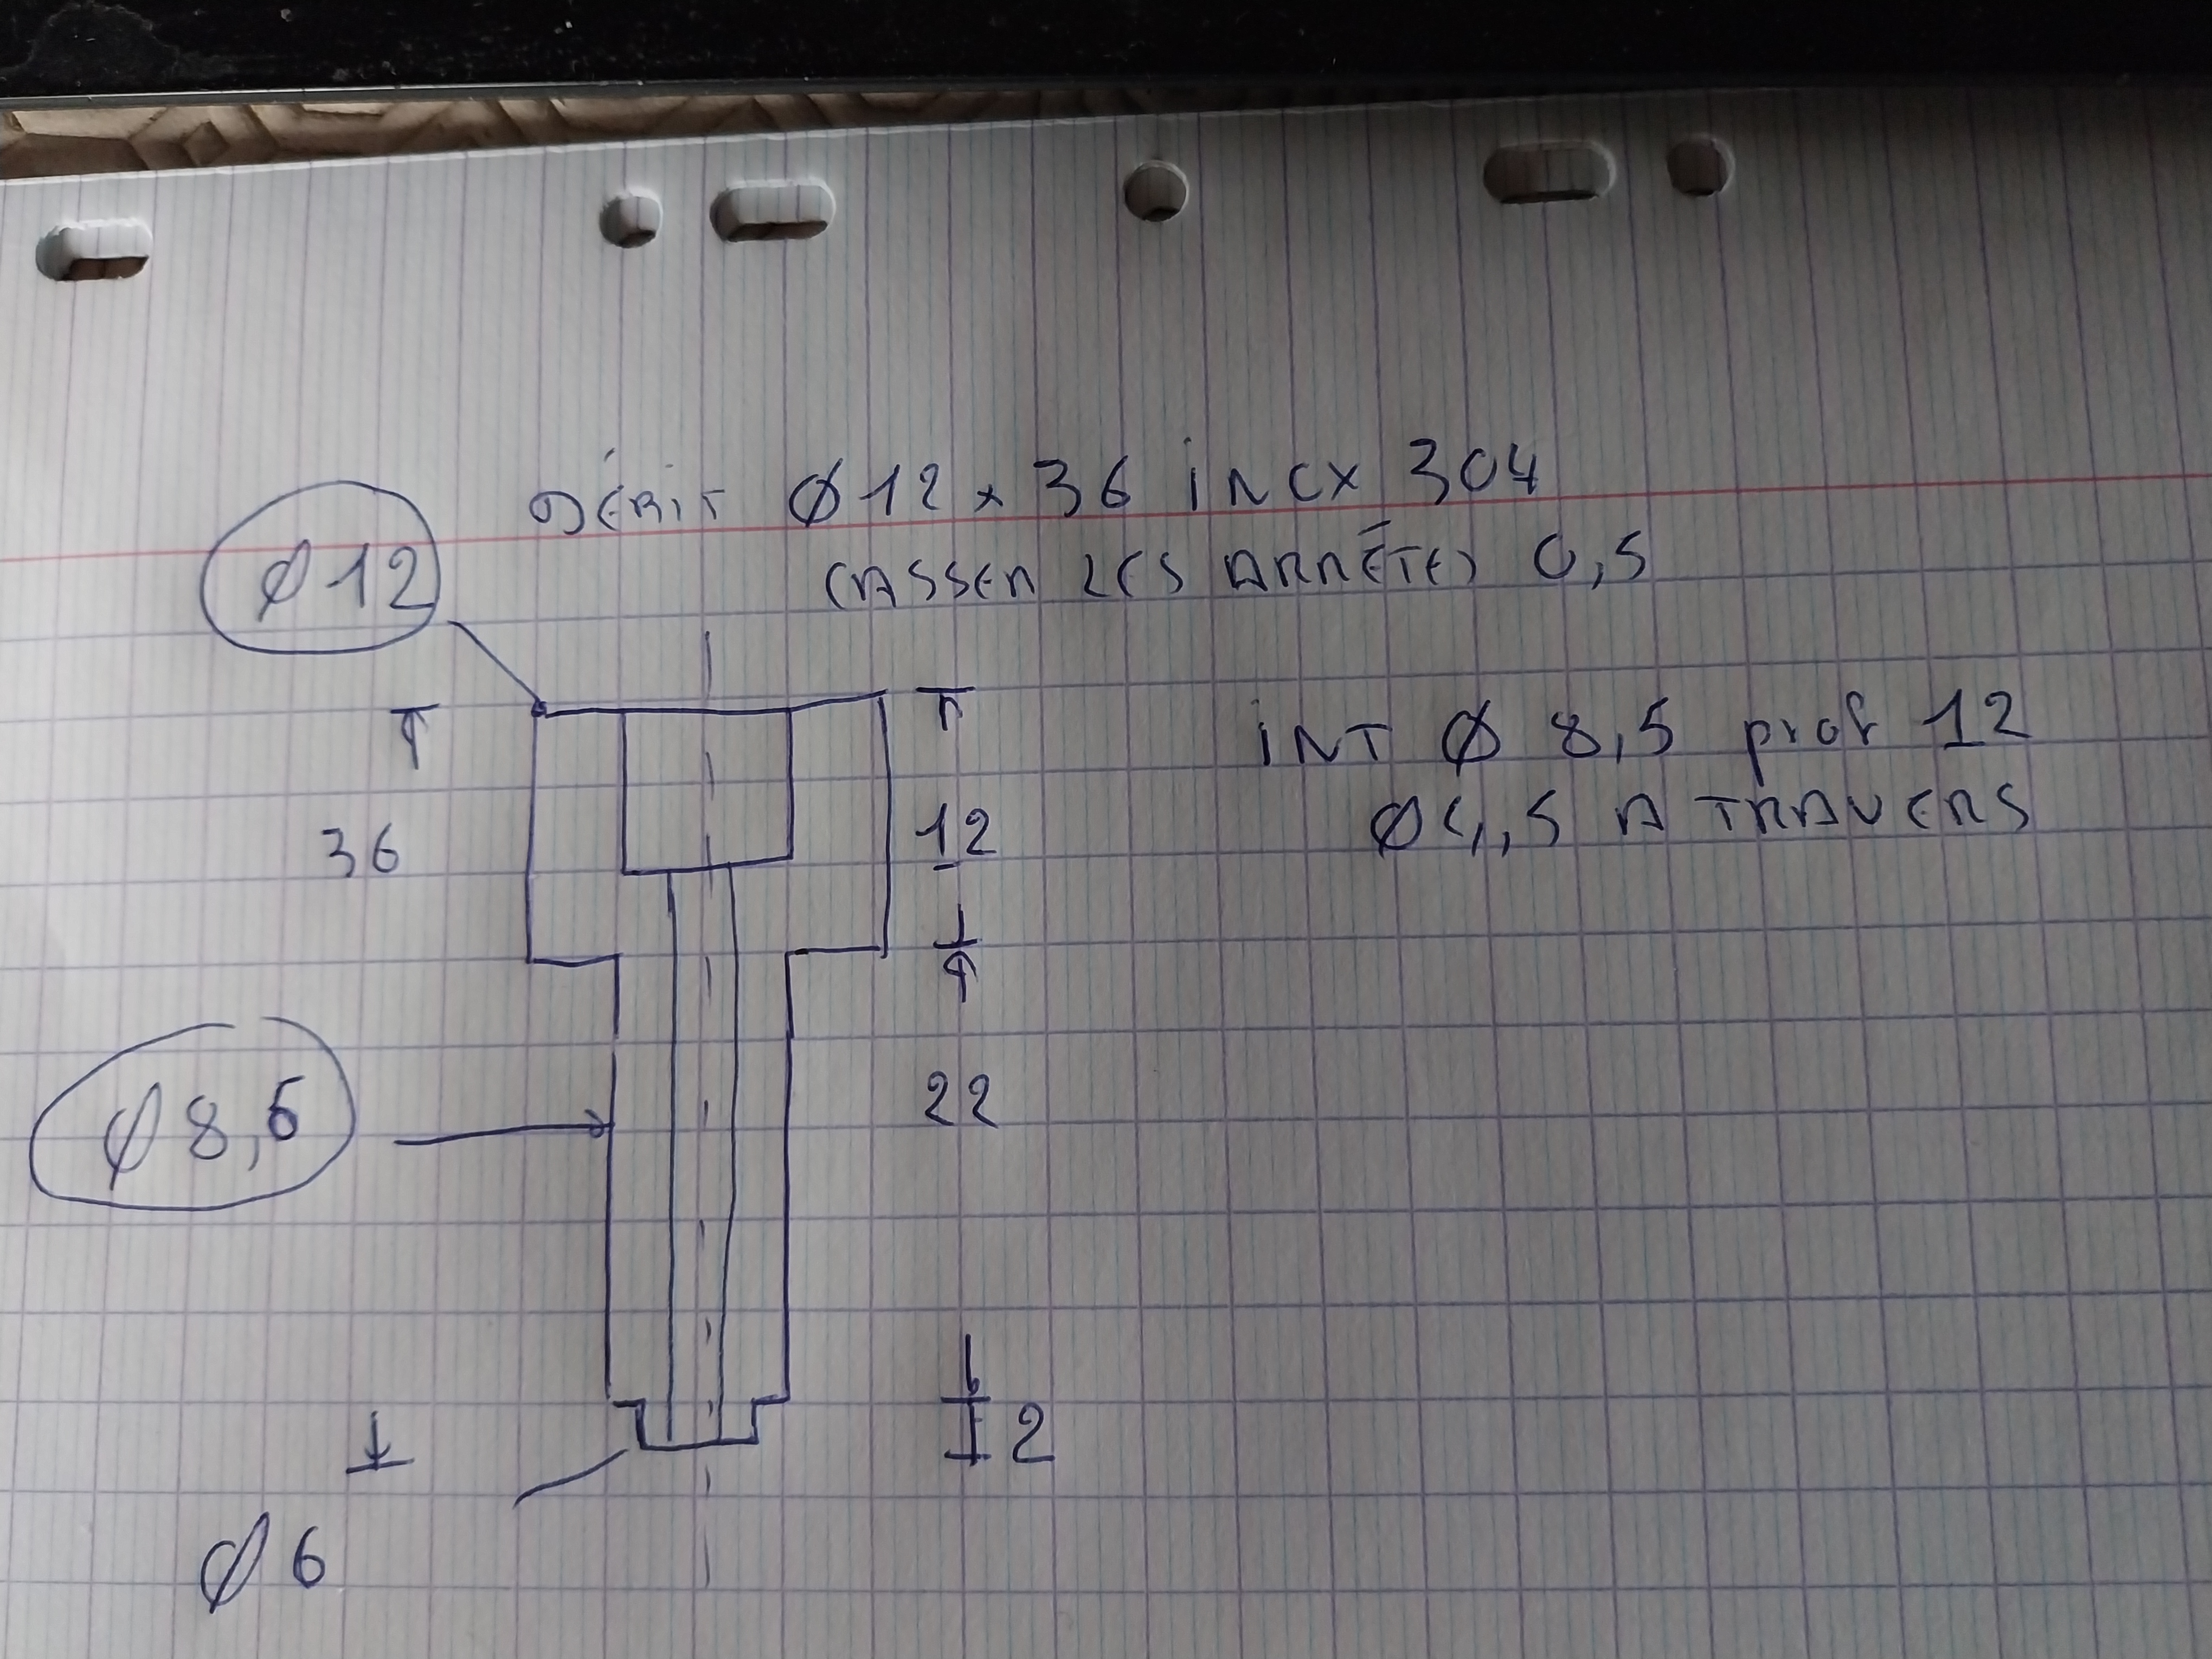 DÉBIT Ø12 x 36 inox 304
CASSER LES ARRÊTES 0,5
Ø12
36
12
INT Ø 8,5 prof 12
Ø4,5 A TRAVERS
Ø8,5
22
2
Ø6